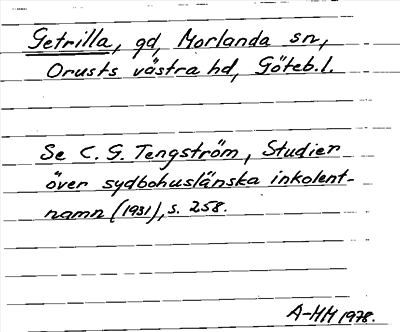 Getrilla, gd, Morlanda sn,
Orusts västra hd, Göteb.l.
Se C. G. Tengström, Studier
över sydbohuslänska inkolent-
namn (1931), s. 258.
A-HH 1978.